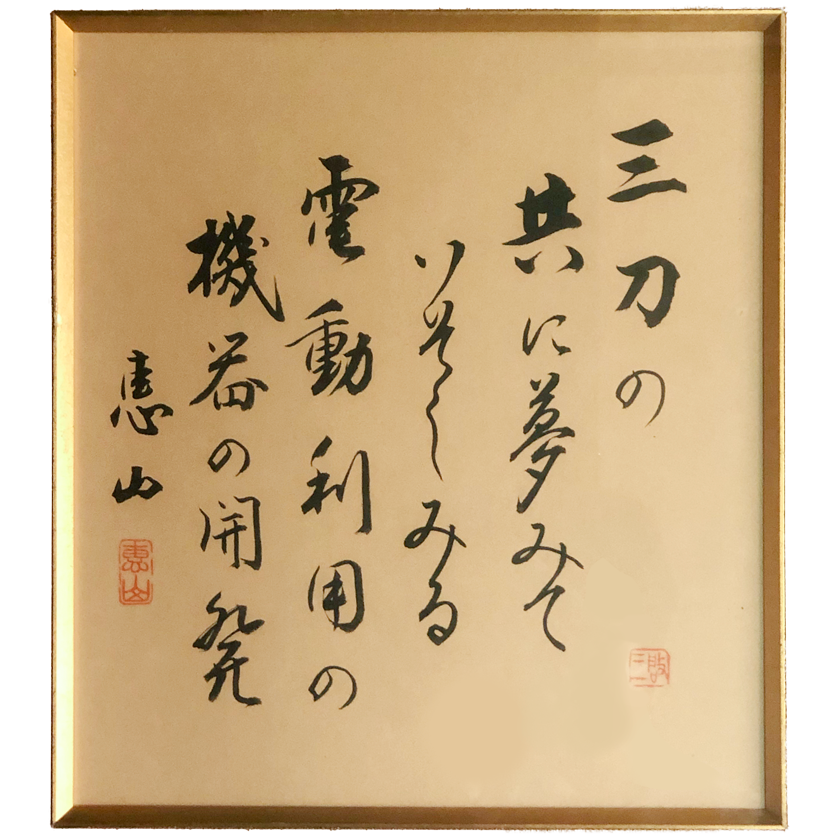 三刀の
共に夢みて
いそしみる
電動利用の
機器の開発
恵山
恵山